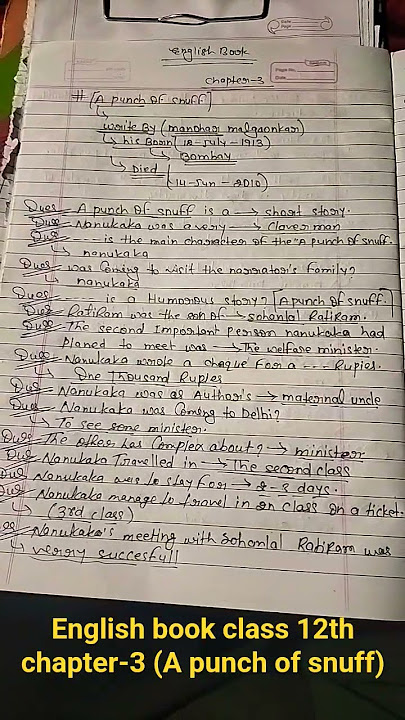 English Book
Chapter-3
# [A punch of snuff]
write By (manohar malgaonkar)
his Born (12-July-1913)
Bombay
Died (14-Jun-2010)
Ques A punch of snuff is a → short story.
Que Nanukaka was a very → Claver man
Que --- is the main character of the "A punch of snuff.
nanukaka
Ques was Coming to visit the narrator's family?
nanukaka
Ques --- is a Humorous story? [A punch of snuff.]
Que RatiRam was the son of → sohanlal Ratiram.
Que The second important person nanukaka had
planed to meet was → The welfare minister.
Que Nanukaka wrole a cheque for a --- Rupies.
One Thousand Ruples
Que Nanukaka was as Author's → maternal uncle
Que Nanukaka was Coming to Delhi?
To see some minister.
Ques The other has Complex about? → minister
Que Nanukaka Travelled in → The second class
Que Nanukaka was to stay for → 2-3 days.
Que Nanukaka manage to travel in 2n class on a ticket.
(3rd class)
Nanukaka's meeting with Sohanlal Ratiram was
verry succesfull
English book class 12th
chapter-3 (A punch of snuff)